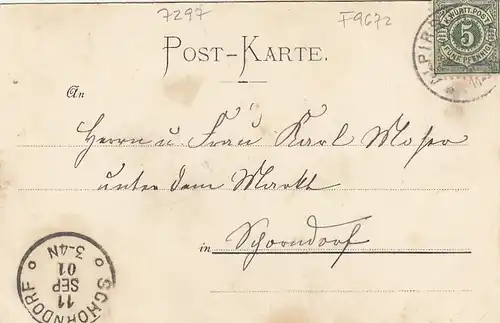 7297
F9672
K. WÜRTT. POST
5
FÜNF PFENNIG
ALPIRS
POST-KARTE.
An
Herrn u Frau Karl Moser
unter dem Markt
in Schorndorf
SCHORNDORF
11
SEP
01
3-4N